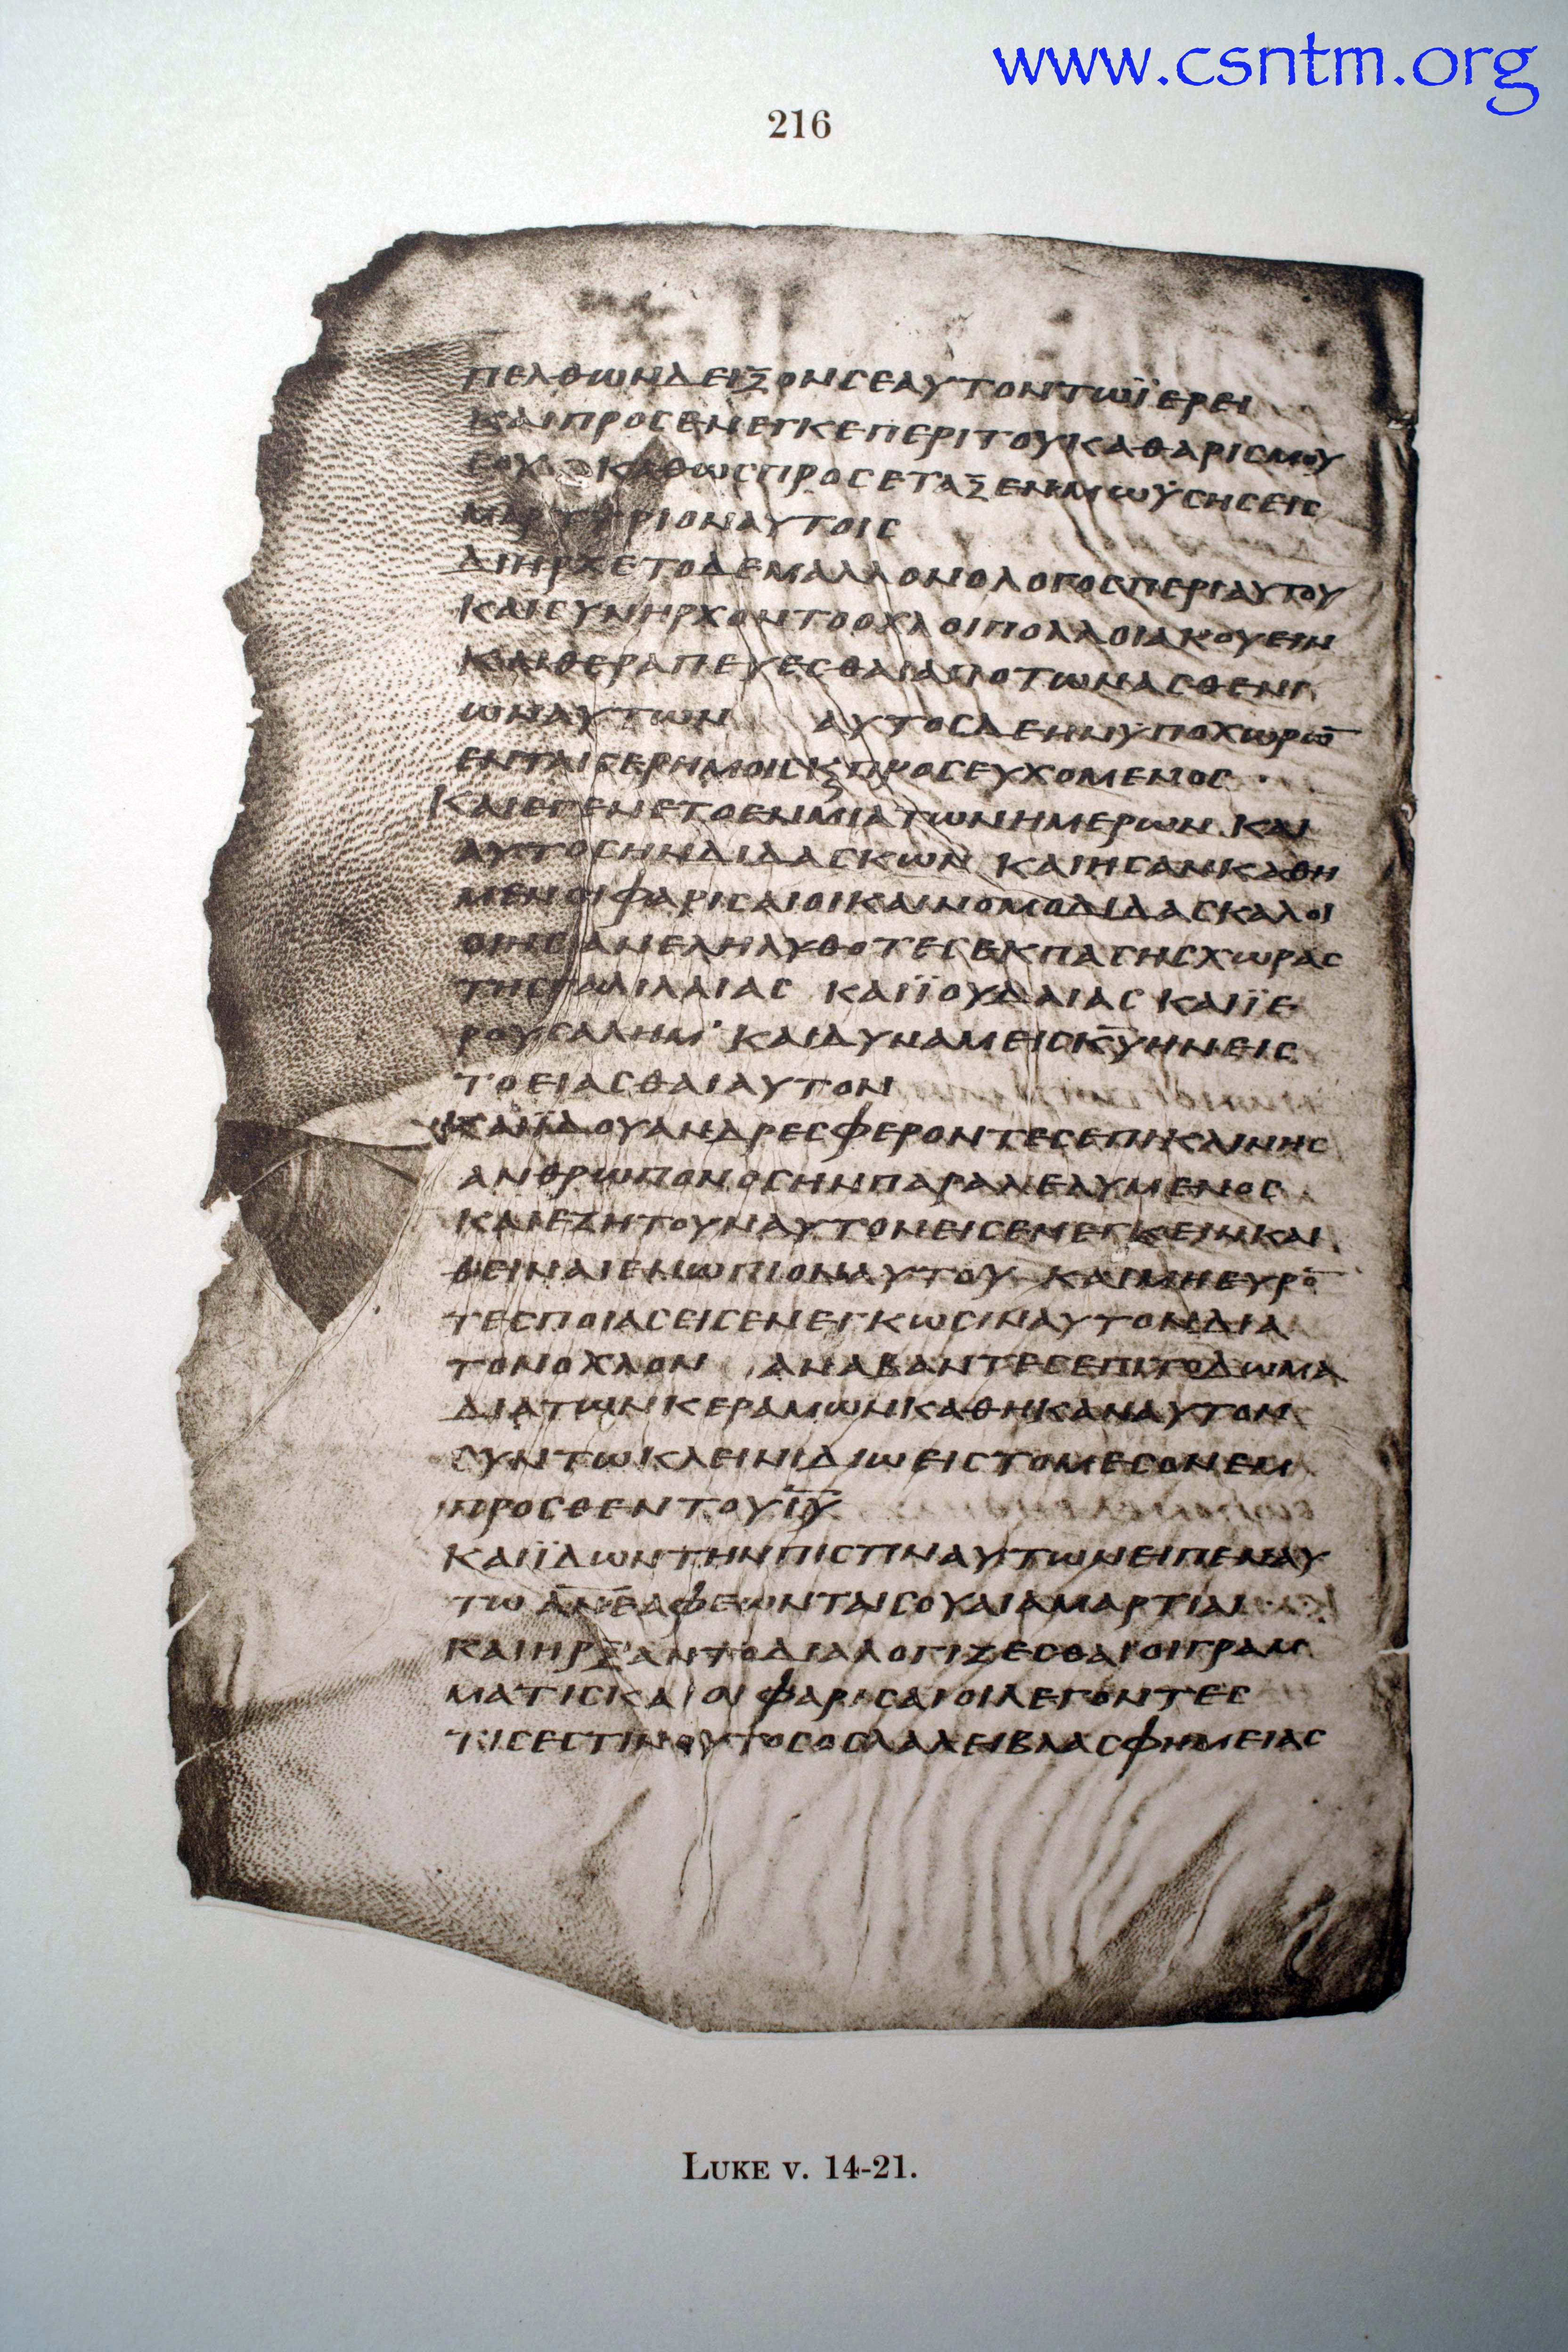 www.csntm.org
216
ΠΕΛΘΩΝΔΕΙΞΟΝΣΕΑΥΤΟΝΤΩΪΕΡΕΙ
ΚΑΙΠΡΟϹΕΝΕΓΚΕΠΕΡΙΤΟΥΚΑΘΑΡΙϹΜΟΥ
ϹΟΥ ΚΑΘΩϹΠΡΟϹΕΤΑΞΕΝΜΩΫϹΗϹΕΙϹ
ΜΑΡΤΥΡΙΟΝΑΥΤΟΙϹ
ΔΙΗΡΧΕΤΟΔΕΜΑΛΛΟΝΟΛΟΓΟϹΠΕΡΙΑΥΤΟΥ
ΚΑΙϹΥΝΗΡΧΟΝΤΟΟΧΛΟΙΠΟΛΛΟΙΑΚΟΥΕΙΝ
ΚΑΙΘΕΡΑΠΕΥΕϹΘΑΙΑΠΟΤΩΝΑϹΘΕΝΙ
ΩΝΑΥΤΩΝ ΑΥΤΟϹΔΕΗΝΥΠΟΧΩΡΩ̅
ΕΝΤΑΙϹΕΡΗΜΟΙϹϏΠΡΟϹΕΥΧΟΜΕΝΟϹ ·
ΚΑΙΕΓΕΝΕΤΟΕΝΜΙΑΤΩΝΗΜΕΡΩΝ ΚΑΙ
ΑΥΤΟϹΗΝΔΙΔΑϹΚΩΝ ΚΑΙΗϹΑΝΚΑΘΗ
ΜΕΝΟΙΦΑΡΙϹΑΙΟΙΚΑΙΝΟΜΟΔΙΔΑϹΚΑΛΟΙ
ΟΙΗϹΑΝΕΛΗΛΥΘΟΤΕϹΕΚΠΑϹΗϹΧΩΡΑϹ
ΤΗϹΓΑΛΙΛΑΙΑϹ ΚΑΙΪΟΥΔΑΙΑϹ ΚΑΙΪΕ
ΡΟΥϹΑΛΗΜ· ΚΑΙΔΥΝΑΜΕΙϹΚ̅Υ̅ΗΝΕΙϹ
ΤΟΕΙΑϹΘΑΙΑΥΤΟΝ
ΚΑΙΪΔΟΥΑΝΔΡΕϹΦΕΡΟΝΤΕϹΕΠΙΚΛΙΝΗϹ
ΑΝΘΡΩΠΟΝΟϹΗΝΠΑΡΑΛΕΛΥΜΕΝΟϹ
ΚΑΙΕΖΗΤΟΥΝΑΥΤΟΝΕΙϹΕΝΕΓΚΕΙΝΚΑΙ
ΘΕΙΝΑΙΕΝΩΠΙΟΝΑΥΤΟΥ ΚΑΙΜΗΕΥΡΟ̅
ΤΕϹΠΟΙΑϹΕΙϹΕΝΕΓΚΩϹΙΝΑΥΤΟΝΔΙΑ
ΤΟΝΟΧΛΟΝ ΑΝΑΒΑΝΤΕϹΕΠΙΤΟΔΩΜΑ
ΔΙΑΤΩΝΚΕΡΑΜΩΝΚΑΘΗΚΑΝΑΥΤΟΝ
ϹΥΝΤΩΚΛΕΙΝΙΔΙΩΕΙϹΤΟΜΕϹΟΝΕΜ
ΠΡΟϹΘΕΝΤΟΥΙ̅Υ̅
ΚΑΙΪΔΩΝΤΗΝΠΙϹΤΙΝΑΥΤΩΝΕΙΠΕΝΑΥ
ΤΩ Α̅Ν̅Ε̅ΑΦΕΩΝΤΑΙϹΟΥΑΙΑΜΑΡΤΙΑΙ
ΚΑΙΗΡΞΑΝΤΟΔΙΑΛΟΓΙΖΕϹΘΑΙΟΙΓΡΑΜ
ΜΑΤΙϹΚΑΙΟΙΦΑΡΙϹΑΙΟΙΛΕΓΟΝΤΕϹ
ΤΙϹΕϹΤΙΝΟΥΤΟϹΟϹΛΑΛΕΙΒΛΑϹΦΗΜΕΙΑϹ
LUKE V. 14-21.